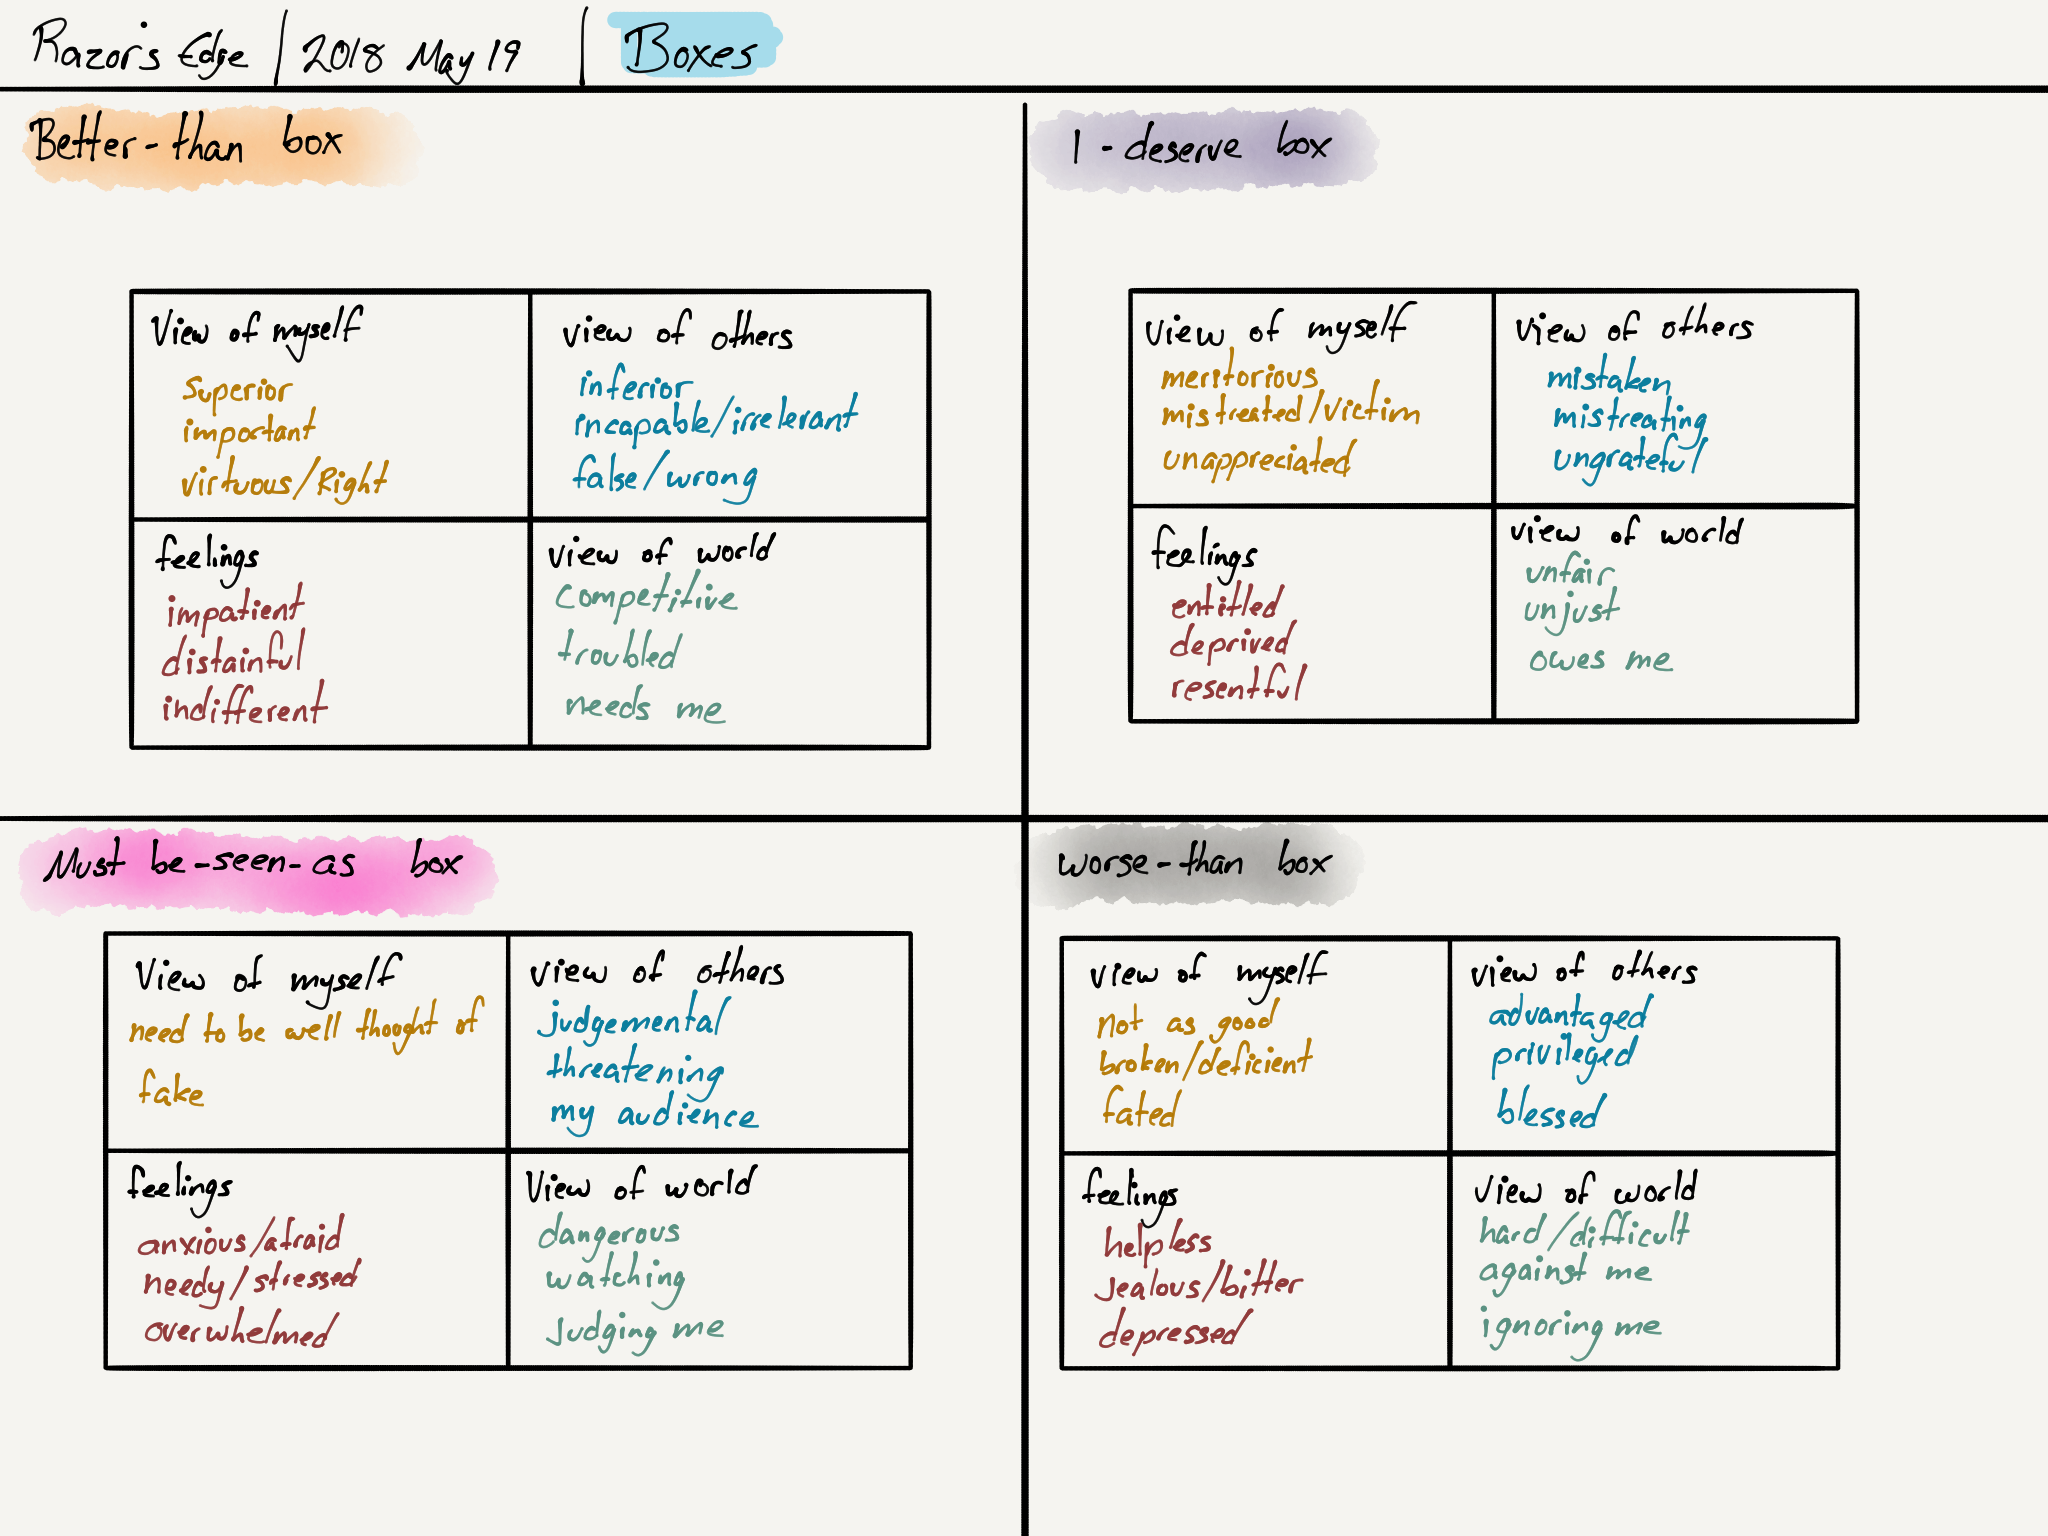 Razor's Edge | 2018 May 19 | Boxes
Better-than box
View of myself
superior
important
virtuous/Right
view of others
inferior
incapable/irrelerant
false/wrong
feelings
impatient
distainful
indifferent
view of world
competitive
troubled
needs me
I-deserve box
view of myself
meritorious
mistreated/victim
unappreciated
view of others
mistaken
mistreating
ungrateful
feelings
entitled
deprived
resentful
view of world
unfair
unjust
owes me
Must be-seen-as box
View of myself
need to be well thought of
fake
view of others
judgemental
threatening
my audience
feelings
anxious/afraid
needy/stressed
overwhelmed
View of world
dangerous
watching
Judging me
worse-than box
view of myself
not as good
broken/deficient
fated
view of others
advantaged
privileged
blessed
feelings
helpless
jealous/bitter
depressed
view of world
hard/difficult
against me
ignoring me